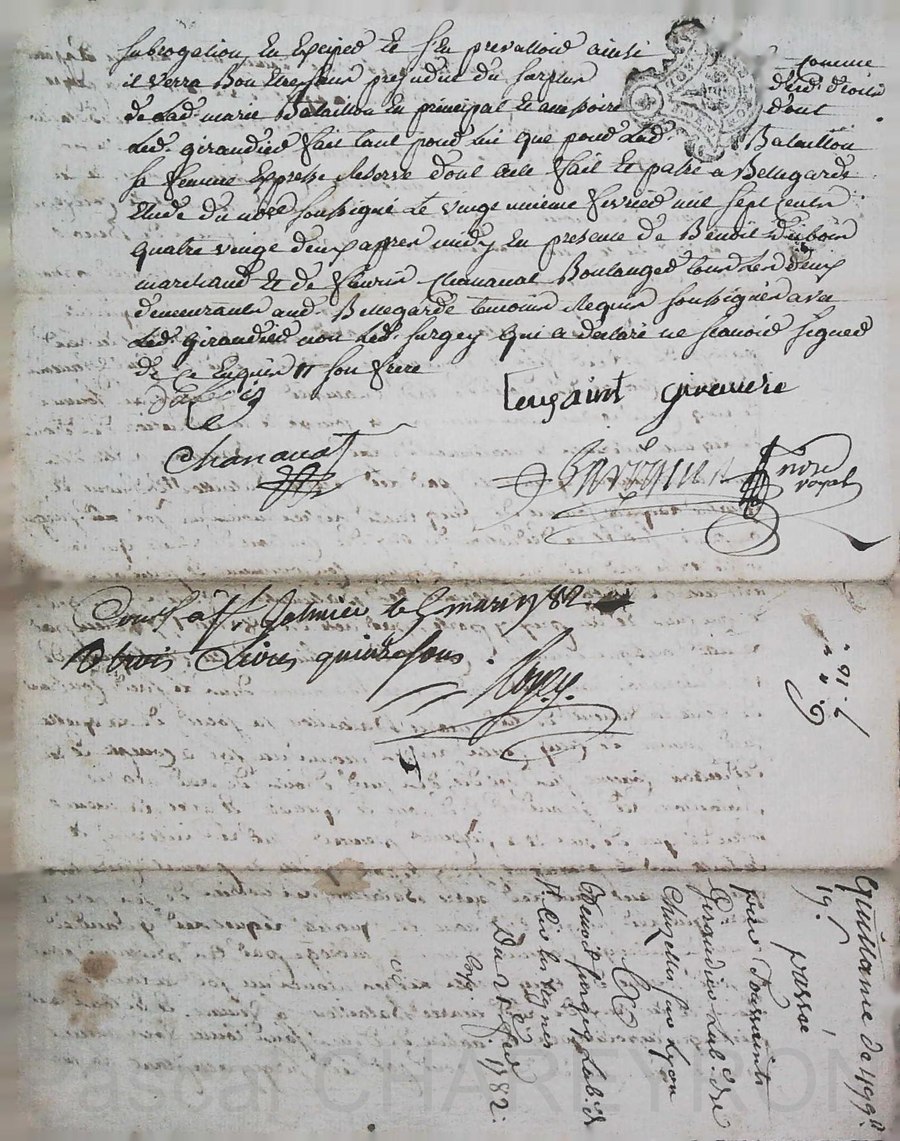 subrogation en Exciper et s'en prevalloir ainsi comme
il verra Bon Etre sans prejudice du surplus des d. droits
de Lad. marie Bataillon en principal et accessoire dont
Led. giraudier fait tant pour Lui que pour Lad. Bataillon
sa femme Expresse Reserve dont acte fait et passé a Bellegarde
Etude du no.re soussigné Le vingt unieme fevrier mil sept cents
quatre vingt deux apprès midy En presence de Benoit Dubois
marchand et de fleuris Chanavat Boulanger tous Les deux
demeurants aud. Bellegarde temoins Requis soussignés avec
Led. giraudier non Led. furgey qui a declaré ne scavoir signer
de ce Enquis son frere
tousaint giraudie
Chanavat
no.re
royal
Con.lé à St. Galmier le 5 mars 1782
trois Livres quinze sous
Quittance de 499
passée
par Toussaint
Giraudier Lab. de
Chazelles sur Lyon
Benoit furgey Lab. de
St.
Du 21 fev. 1782.
Pascal CHAREYRON